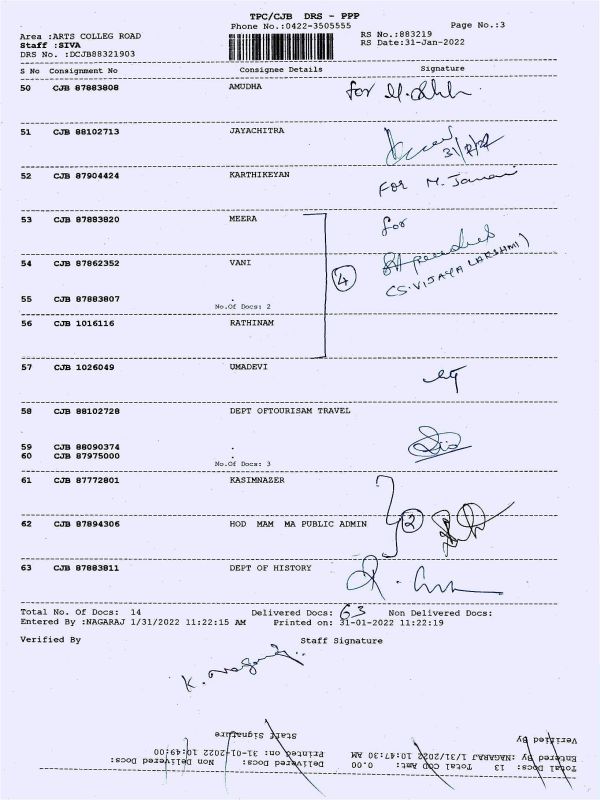 TPC/CJB DRS - PPP
Phone No.:0422-3505555
Page No.:3
Area :ARTS COLLEG ROAD
RS No.:883219
Staff :SIVA
RS Date:31-Jan-2022
DRS No. :DCJB88321903
S No Consignment No Consignee Details Signature
50 CJB 87883808 AMUDHA
for
51 CJB 88102713 JAYACHITRA
52 CJB 87904424 KARTHIKEYAN
For M.
53 CJB 87883820 MEERA
for
54 CJB 87862352 VANI
4
(S.VIJAYA LAKSHMI)
55 CJB 87883807 .
No.Of Docs: 2
56 CJB 1016116 RATHINAM
57 CJB 1026049 UMADEVI
58 CJB 88102728 DEPT OFTOURISAM TRAVEL
59 CJB 88090374 .
60 CJB 87975000 .
No.Of Docs: 3
61 CJB 87772801 KASIMNAZER
2
62 CJB 87894306 HOD MAM MA PUBLIC ADMIN
63 CJB 87883811 DEPT OF HISTORY
Total No. Of Docs: 14 Delivered Docs: 63 Non Delivered Docs:
Entered By :NAGARAJ 1/31/2022 11:22:15 AM Printed on: 31-01-2022 11:22:19
Verified By Staff Signature
Verified By Staff Signature
Entered By :NAGARAJ 1/31/2022 10:47:30 AM Printed on: 31-01-2022 10:49:00
Total Docs: 13 Total COD Amt: 0.00 Delivered Docs: Non Delivered Docs: